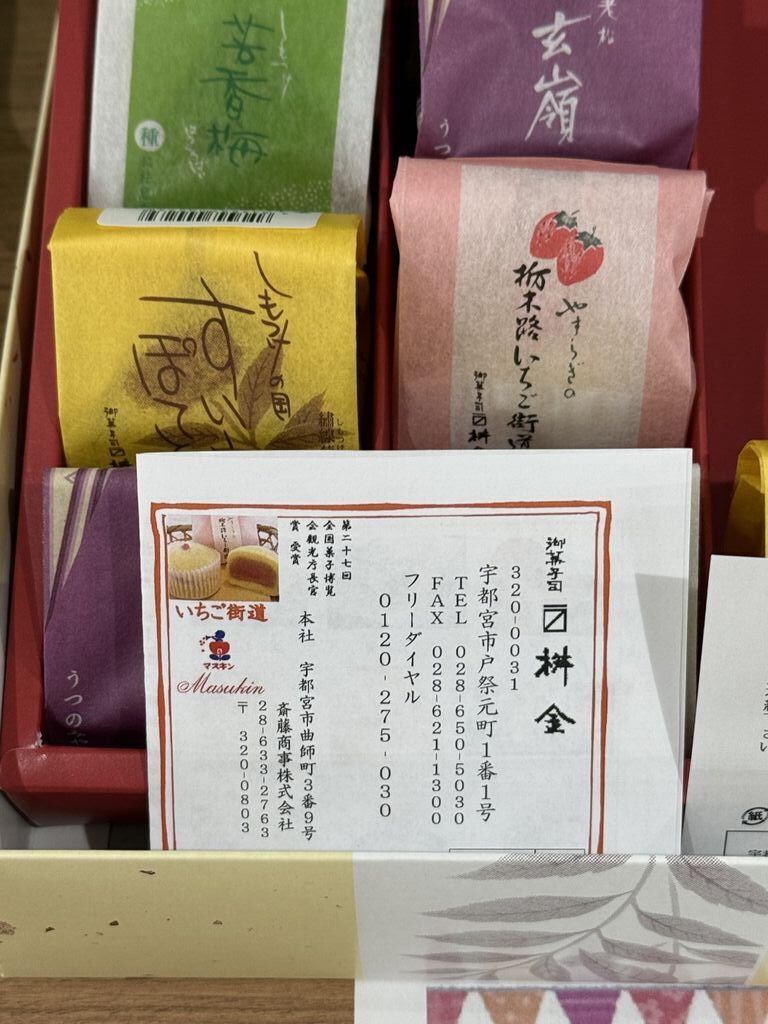 香梅
種
老松
玄嶺
うつ
しもつけの国
すい
ぽて
御菓子司 桝
やすらぎの
栃木路いちご街道
御菓子司 桝金
うつの
御菓子司 桝金
320-0031
宇都宮市戸祭元町1番1号
TEL 028-650-5030
FAX 028-621-1300
フリーダイヤル
0120-275-030
第二十七回
全国菓子博覧
会観光庁長官
賞 受賞
いちご街道
マスキン
Masukin
本社 宇都宮市曲師町3番9号
斎藤商事株式会社
28-633-2763
〒 320-0803
紙